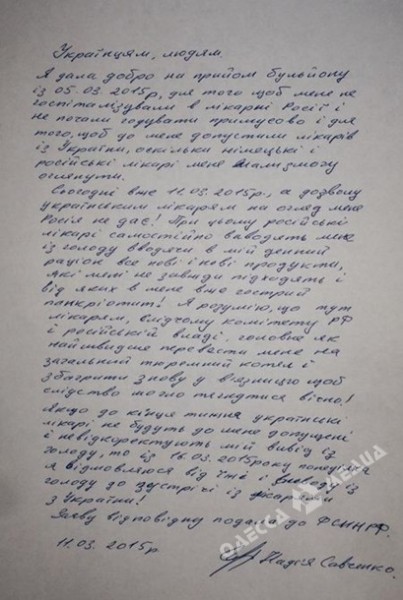 Українцям, людям.
Я дала добро на прийом бульйону
із 05.03.2015р, для того щоб мене не
госпіталізували в лікарні Росії і
не почали годувати примусово і для
того, щоб до мене допустили лікарів
із України, оскільки німецькі і
російські лікарі мене мали змогу
оглянути.
Сьогодні вже 11.03.2015р., а дозволу
українським лікарям на огляд мене
Росія не дає! При цьому російські
лікарі самостійно виводять мене
із голоду вводячи в мій денний
раціон все нові і нові продукти,
які мені не завжди підходять і
від яких в мене вже гострий
панкріотит! Я розумію, що тут
лікарям, слідчому комітету РФ
і російській владі, головне як
найшвидше перевести мене на
загальний тюремний котел і
збагрити знову у в'язницю щоб
слідство могло тягнутися вічно!
Якщо до кінця тижня українські
лікарі не будуть до мене допущені
і не відкоректують мій вивід із
голоду, то із 16.03.2015року понеділка
я відмовляюся від їжі і виводу із
голоду до зустрічі із лікарями
з України!
Заяву відповідну подали до ФСИН РФ.
11.03.2015р
Надія Савченко.
ОДЕССА МЕДИА